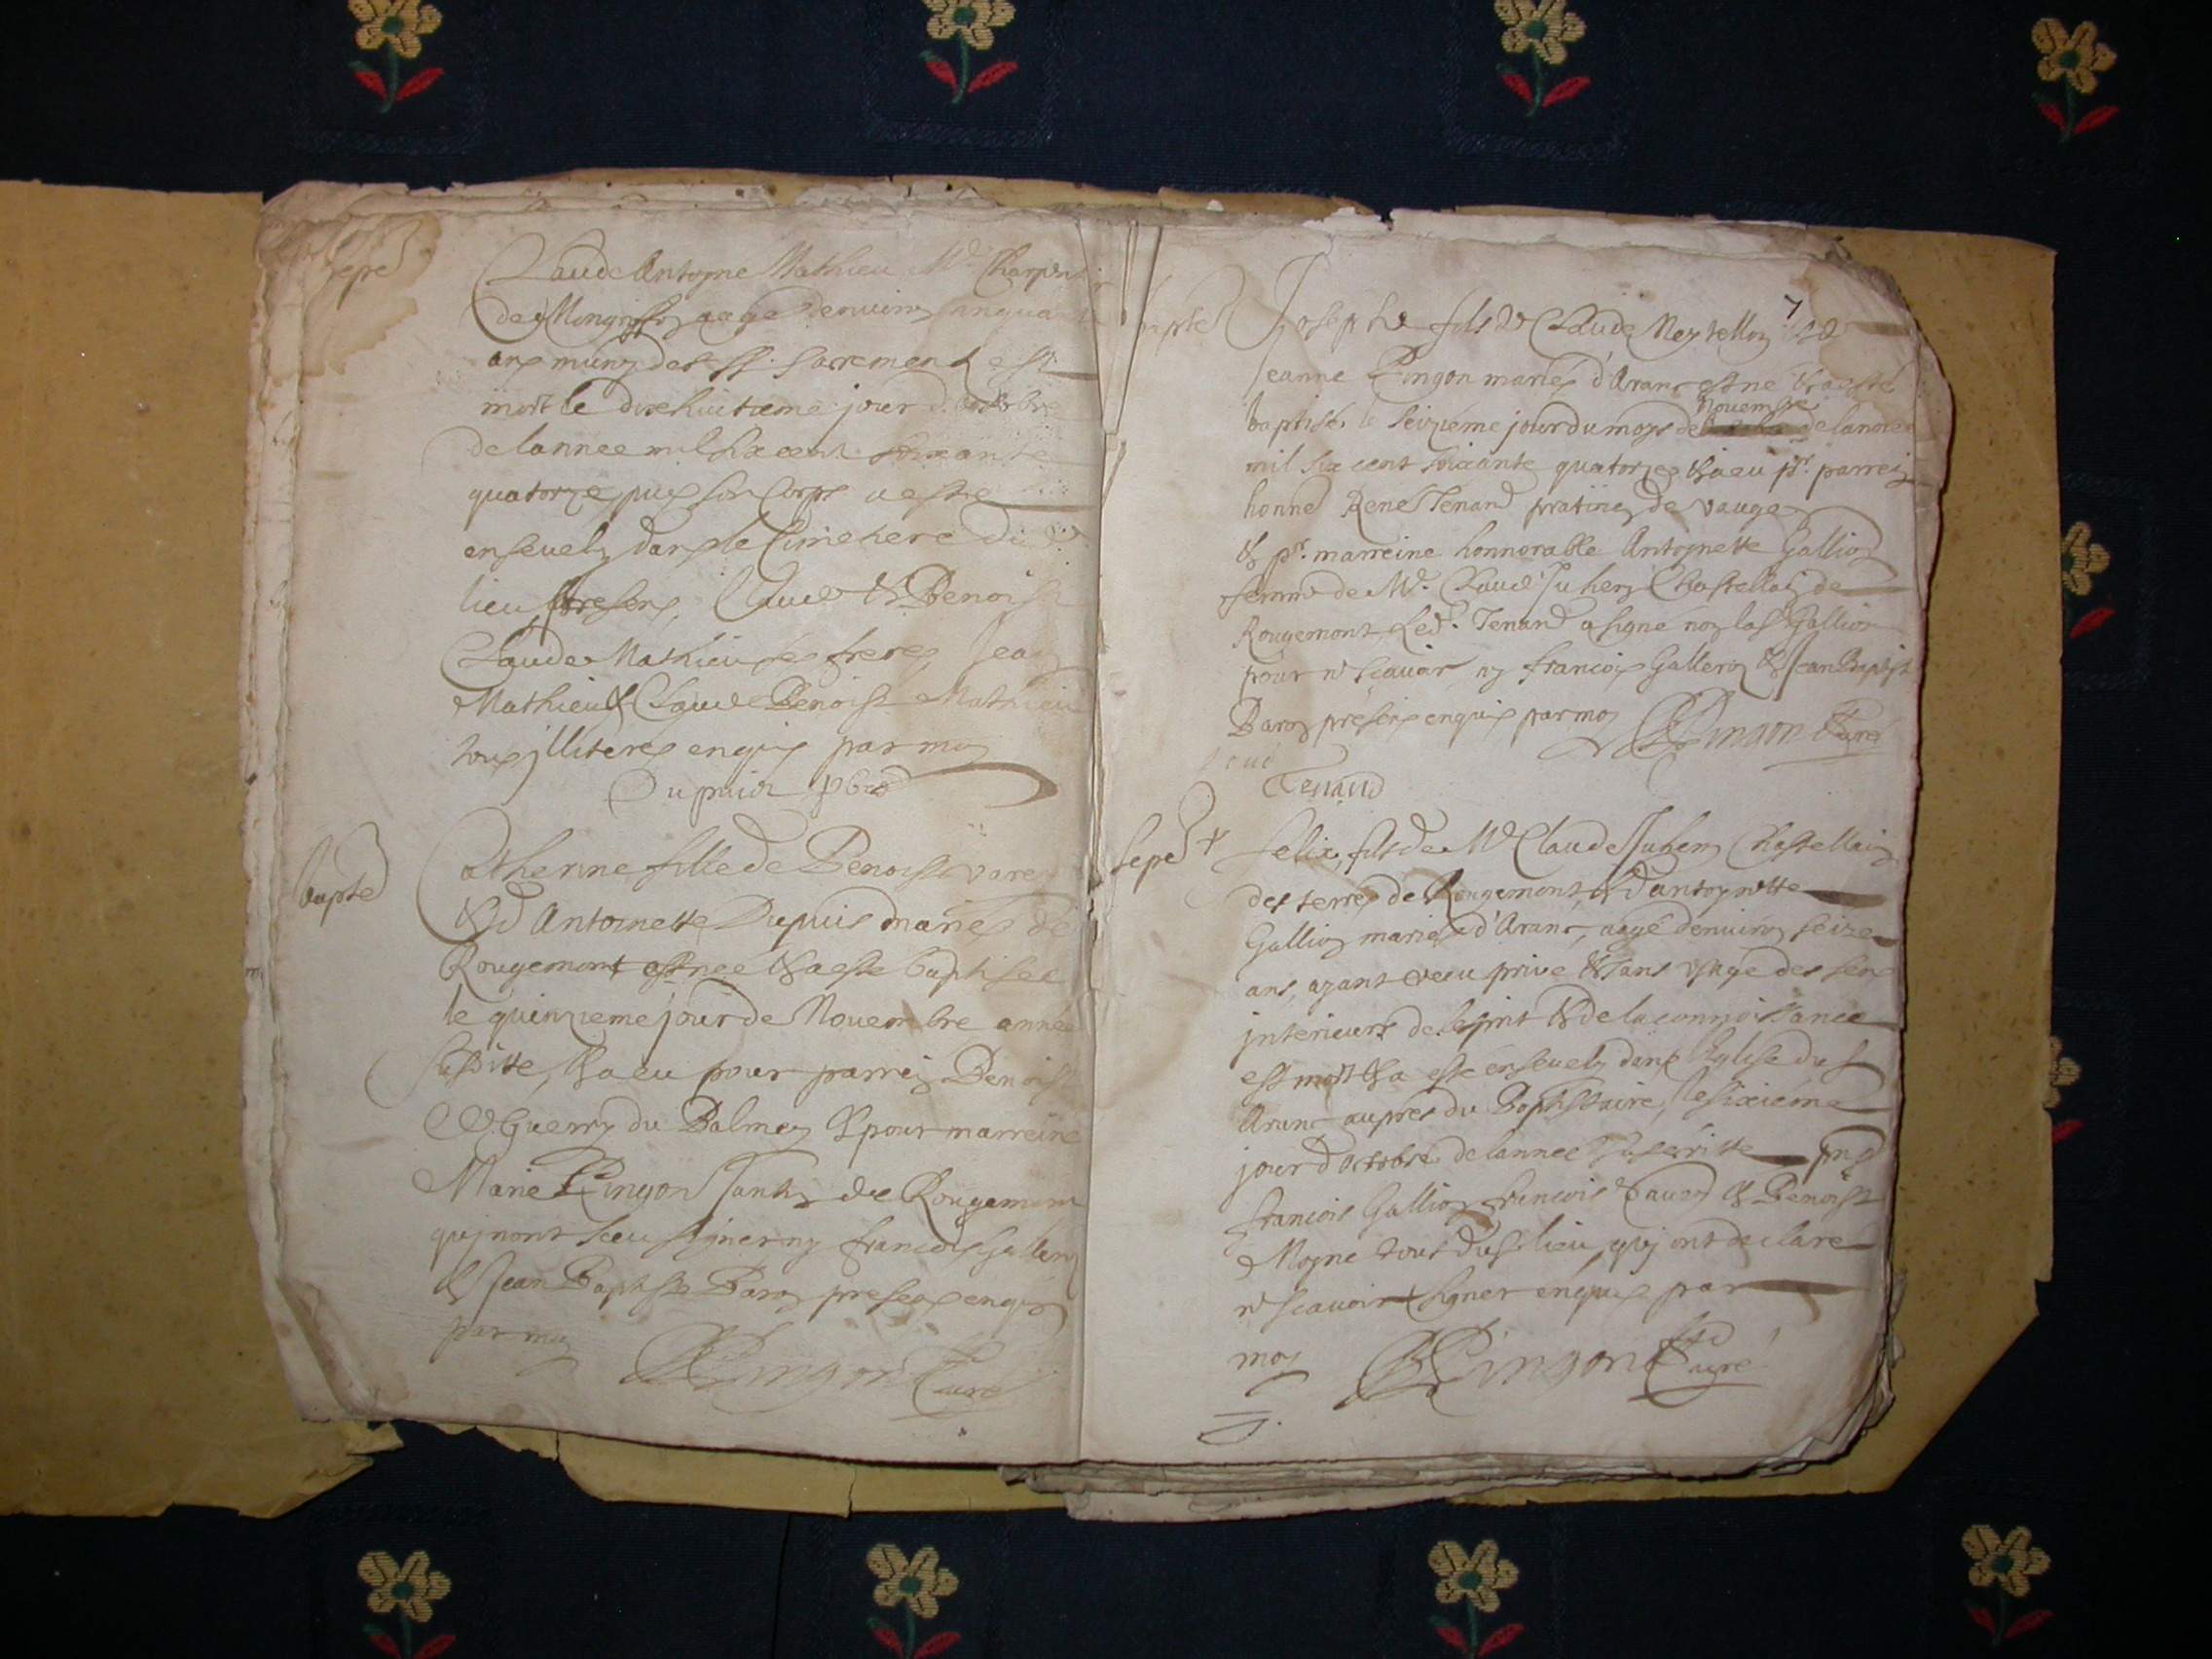 sepre
Claude Antoyne Mathieu Me Charpentier
de aagé denuiron cinquante
ans muny des SS. sacrements est
mort le dixhuitieme jour d'octobre
de lannee mil six cent soixante
quatorze puis son Corps a esté
enseuely dans le Cimetiere dudt
lieu, presens, Claude & Benoist
Claude Mathieu ses freres, Jean
Mathieu & Claude Benoist Mathieu
tous jlliteres enquis par moy
Dupuis pbre
bapte
Catherine fille de Benoist
& d'Antoinette Dupuis mariés de
Rougemont est née & a esté baptisée
le quinzieme jour de Nouembre année
susditte, & a eu pour parrein Benoist
Guerry du Balmey & pour marreine
Marie Pingon de Rougemont
quj nont sceu signer ny francois Gallien
& Jean Baptiste Baron presens enquis
par moy
Pingon Curé
7
bapte
Josephe fils de Claude Neytellon & de
Jeanne Pingon mariés d'Aranc est né & a esté
baptisé le seizieme jour du moys de Nouembre de lannee
mil six cent soixante quatorze & a eu pr. parrein
honne René Tenand praticien de
& pr. marreine honnorable Antoynette Gallion
femme de Me. Claude Juhen Chastellain de
Rougemont, Led. Tenand a signé non las Gallion
pour ne scauoir ny francois Gallien & Jean Baptiste
Baron presens enquis par moy Pingon Curé
Tenand
sepe +
felix, fils de Me Claude Juhen Chastellain
des terres de Rougemont, & d'antoynette
Gallion mariés d'Aranc, aagé denuiron seize
ans, ayant vecu privé & sans vsage des sens
jnterieurs de lesprit & de la connoissance
est mort & a esté enseuely dans l'Eglise du
Aranc aupres du Baptistaire, le sixieme
jour d'octobre de lannee susescritte pns
francois Gallion francois & Benoist
Moyne tous dud. lieu, quj ont declaré
ne scauoir signer enquis par
moy Pingon Curé